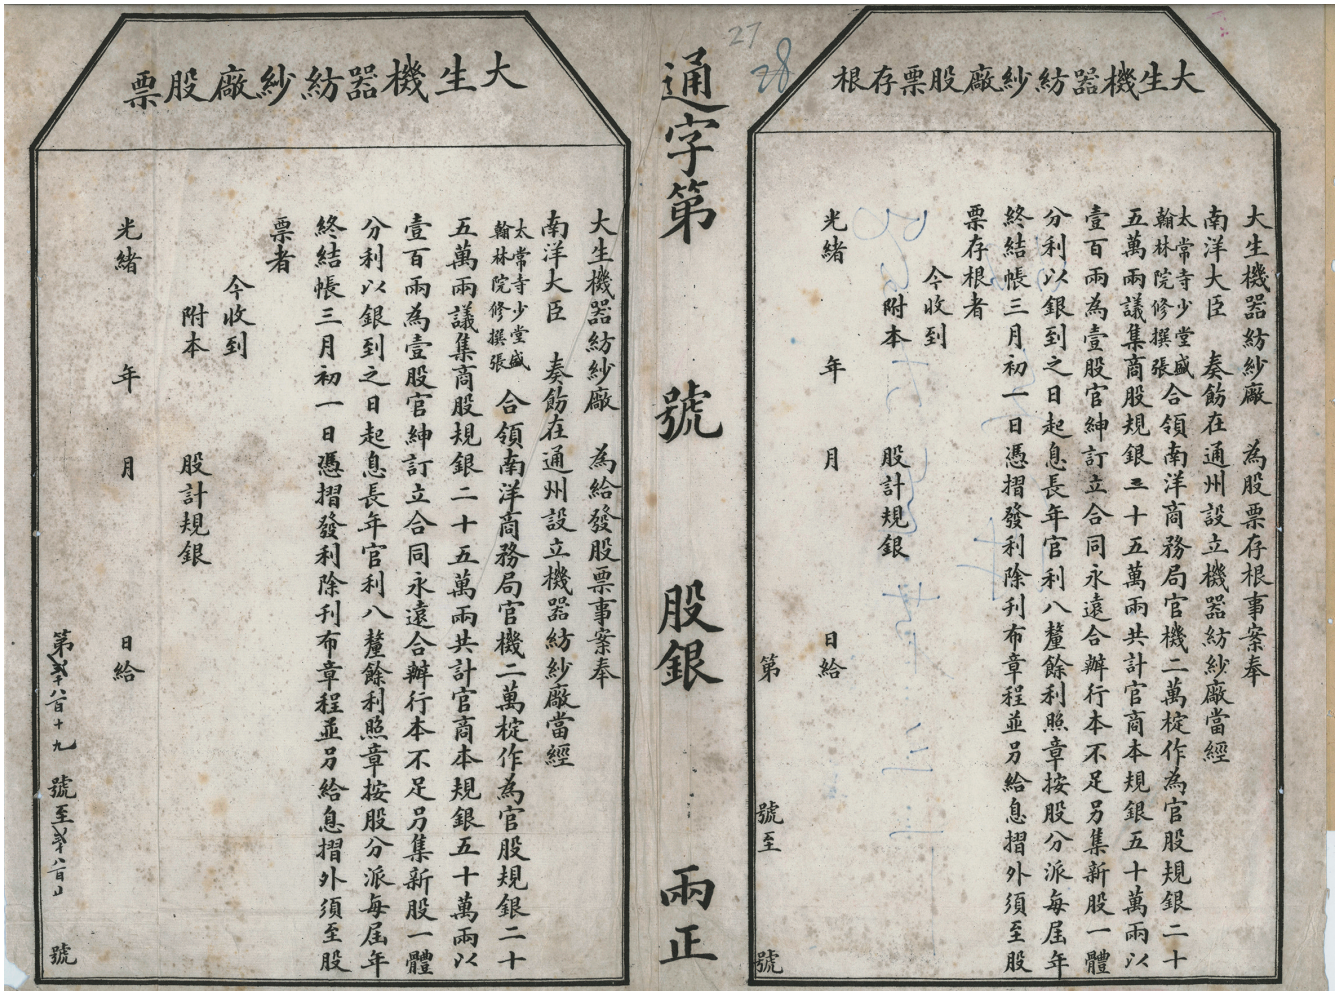 大生機器紡紗廠股票存根
大生機器紡紗廠 為股票存根事案奉
南洋大臣 奏飭在通州設立機器紡紗廠當經
太常寺少堂盛
翰林院修撰張
合領南洋商務局官機二萬椗作為官股規銀二十
五萬兩議集商股規銀二十五萬兩共計官商本規銀五十萬兩以
壹百兩為壹股官紳訂立合同永遠合辦行本不足另集新股一體
分利以銀到之日起息長年官利八釐餘利照章按股分派每屆年
終結帳三月初一日憑摺發利除刊布章程並另給息摺外須至股
票存根者
今收到
附本 股計規銀
光緒 年 月 日給
第 號至 號
27
28
通字第 號 股銀 兩正
大生機器紡紗廠股票
大生機器紡紗廠 為給發股票事案奉
南洋大臣 奏飭在通州設立機器紡紗廠當經
太常寺少堂盛
翰林院修撰張
合領南洋商務局官機二萬椗作為官股規銀二十
五萬兩議集商股規銀二十五萬兩共計官商本規銀五十萬兩以
壹百兩為壹股官紳訂立合同永遠合辦行本不足另集新股一體
分利以銀到之日起息長年官利八釐餘利照章按股分派每屆年
終結帳三月初一日憑摺發利除刊布章程並另給息摺外須至股
票者
今收到
附本 股計規銀
光緒 年 月 日給
第 八百十九 號至 八百 號